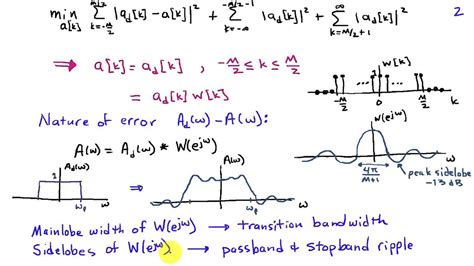 min a[k] Σ_{k=-M/2}^{M/2} |a_d[k] - a[k]|² + Σ_{-∞}^{-M/2-1} |a_d[k]|² + Σ_{k=M/2+1}^{∞} |a_d[k]|² 2
⇒ a[k] = a_d[k] , -M/2 ≤ k ≤ M/2
= a_d[k] w[k]
1 w[k]
-M/2 0 M/2 k
Nature of error A_d(ω) - A(ω):
A(ω) = A_d(ω) * W(e^{jω})
W(e^{jω})
4π/(M+1) ω
peak sidelobe
-13 dB
1 A_d(ω)
ω_p ω
⇒
A(ω)
ω_p ω
Mainlobe width of W(e^{jω}) → transition bandwidth
Sidelobes of W(e^{jω}) → passband & stopband ripple